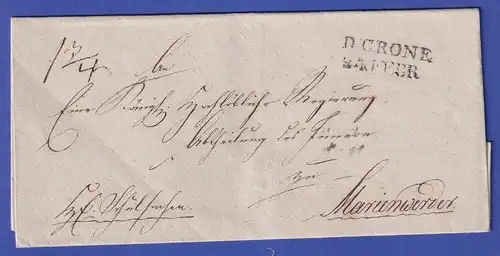 D. CRONE
FEBER
An
Eine Königl. Hochlöbliche Regierung
Abtheilung des Innern
zu
Marienwerder.
Schulsachen